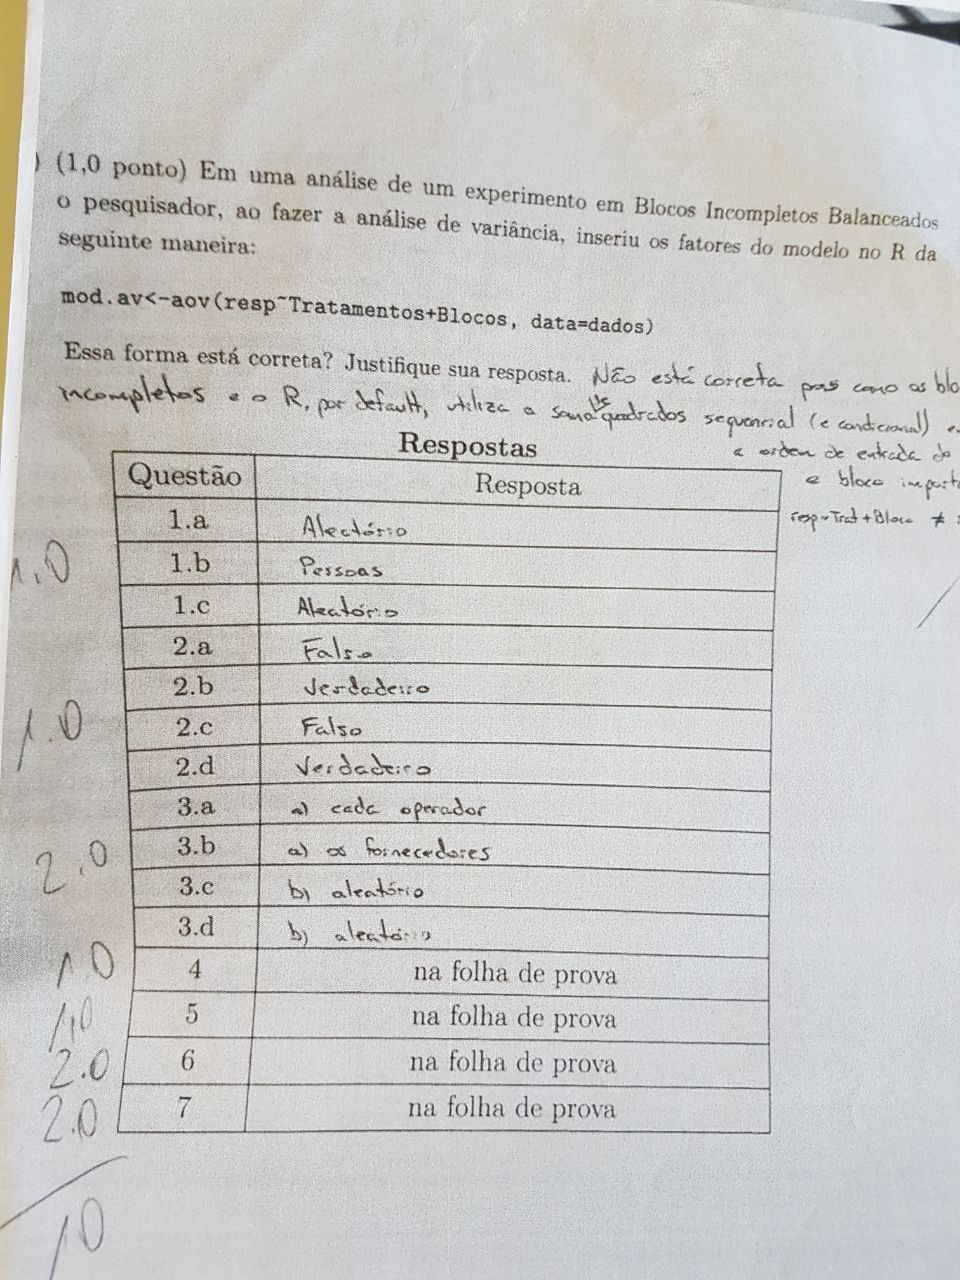 ) (1,0 ponto) Em uma análise de um experimento em Blocos Incompletos Balanceados
o pesquisador, ao fazer a análise de variância, inseriu os fatores do modelo no R da
seguinte maneira:
mod.av<-aov(resp~Tratamentos+Blocos, data=dados)
Essa forma está correta? Justifique sua resposta. Não está correta pois como os
incompletos e o R, por default, utiliza a soma de quadrados sequencial (e condicional)
a ordem de entrada do
e bloco
resp~Trat+Bloco ≠
Respostas
Questão Resposta
1.a Aleatório
1.b Pessoas
1.c Aleatório
1.0
2.a Falso
2.b Verdadeiro
2.c Falso
2.d Verdadeiro
1.0
3.a a) cada operador
3.b a) os fornecedores
3.c b) aleatório
3.d b) aleatório
2.0
4 na folha de prova
1.0
5 na folha de prova
1,0
6 na folha de prova
2.0
7 na folha de prova
2.0
10